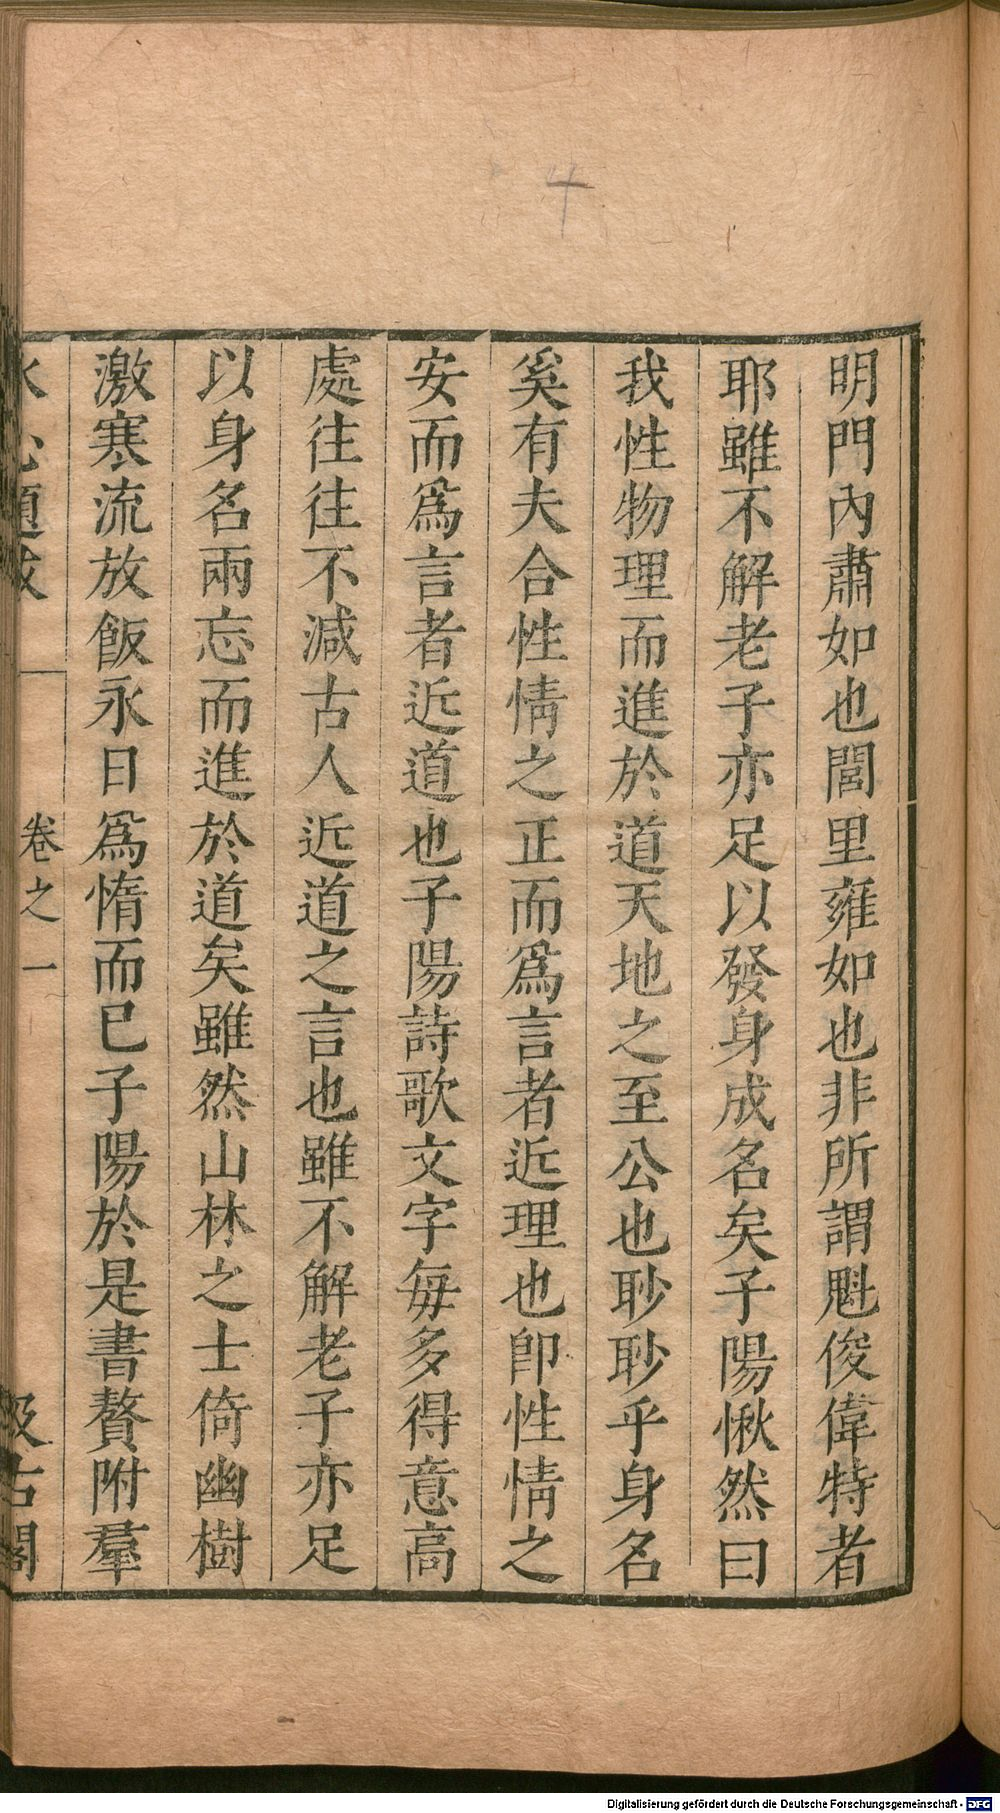 明門內肅如也閭里雍如也非所謂魁俊偉特者
耶雖不解老子亦足以發身成名矣子陽愀然曰
我性物理而進於道天地之至公也眇眇乎身名
奚有夫合性情之正而爲言者近理也卽性情之
安而爲言者近道也子陽詩歌文字每多得意高
處往往不減古人近道之言也雖不解老子亦足
以身名兩忘而進於道矣雖然山林之士倚幽樹
激寒流放飯永日爲惰而已子陽於是書贅附羣
水心題跋 卷之一 汲古閣
4
Digitalisierung gefördert durch die Deutsche Forschungsgemeinschaft - DFG